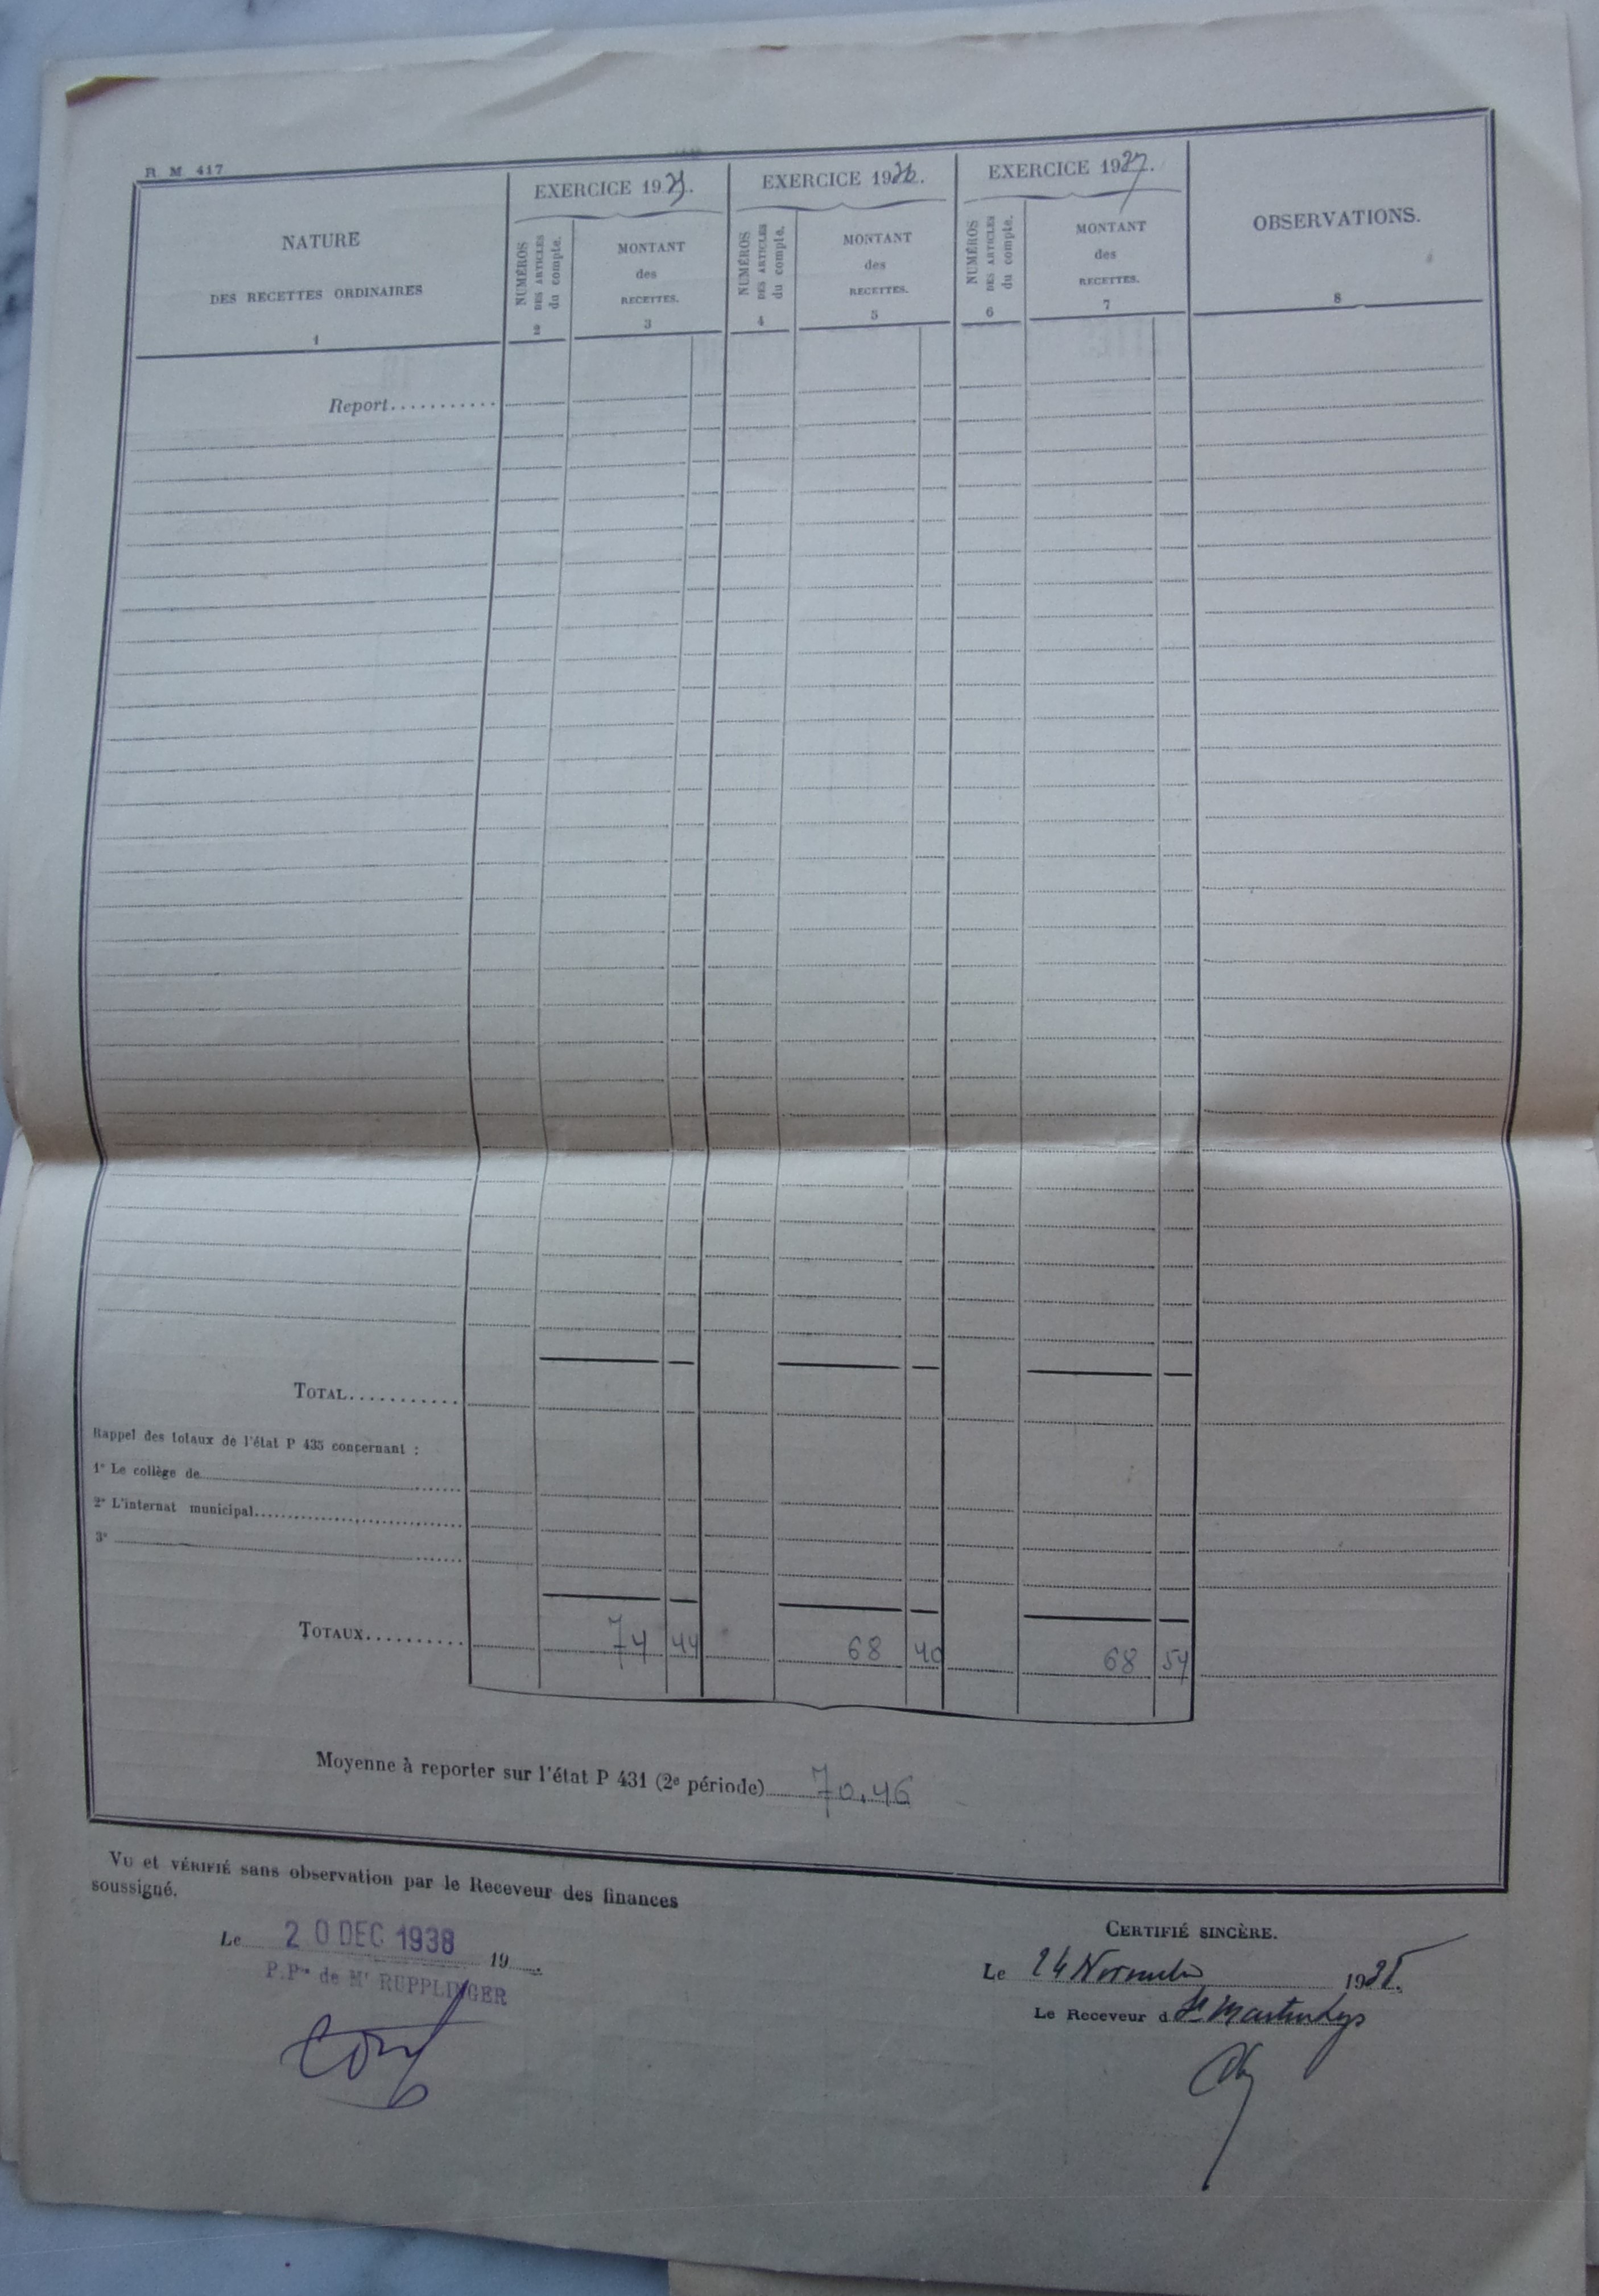 R M 417
NATURE
DES RECETTES ORDINAIRES
1
EXERCICE 19
NUMÉROS
DES ARTICLES
du compte.
2
MONTANT
des
RECETTES.
3
EXERCICE 1936.
NUMÉROS
DES ARTICLES
du compte.
4
MONTANT
des
RECETTES.
5
EXERCICE 1937.
NUMÉROS
DES ARTICLES
du compte.
6
MONTANT
des
RECETTES.
7
OBSERVATIONS.
8
Report...........
TOTAL...........
Rappel des totaux de l'état P 435 concernant :
1° Le collège de
2° L'internat municipal
3°
TOTAUX.......... 74 44 68 40 68 54
Moyenne à reporter sur l'état P 431 (2e période) 70.46
VU et VÉRIFIÉ sans observation par le Receveur des finances
soussigné.
Le 20 DEC 1938 19
P.Pon de Mr RUPPLINGER
CERTIFIÉ SINCÈRE.
Le 24 Novembre 1938.
Le Receveur d St Martin Lys